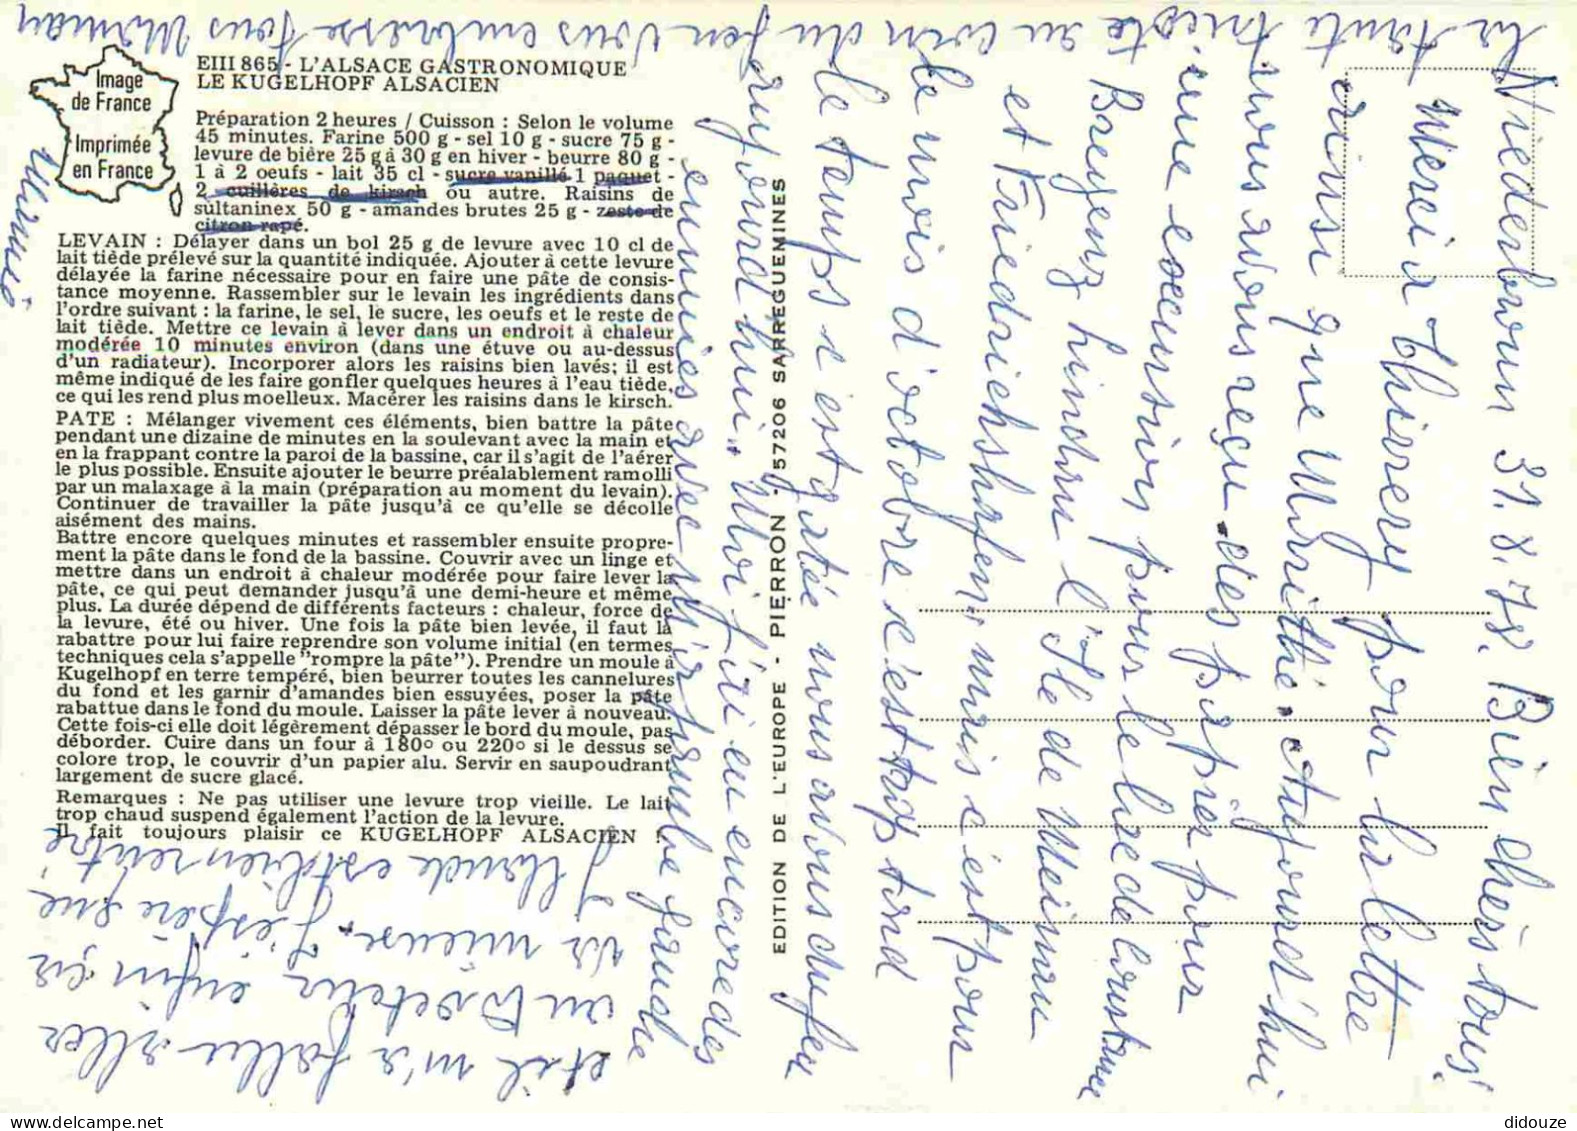 Image
de France
Imprimée
en France
EIII 865 - L'ALSACE GASTRONOMIQUE
LE KUGELHOPF ALSACIEN
Préparation 2 heures / Cuisson : Selon le volume
45 minutes. Farine 500 g - sel 10 g - sucre 75 g -
levure de bière 25 g à 30 g en hiver - beurre 80 g -
1 à 2 oeufs - lait 35 cl - sucre vanillé 1 paquet -
2 cuillères de kirsch ou autre. Raisins de
sultaninex 50 g - amandes brutes 25 g - zeste de
citron rapé.
LEVAIN : Délayer dans un bol 25 g de levure avec 10 cl de
lait tiède prélevé sur la quantité indiquée. Ajouter à cette levure
délayée la farine nécessaire pour en faire une pâte de consis-
tance moyenne. Rassembler sur le levain les ingrédients dans
l'ordre suivant : la farine, le sel, le sucre, les oeufs et le reste de
lait tiède. Mettre ce levain à lever dans un endroit à chaleur
modérée 10 minutes environ (dans une étuve ou au-dessus
d'un radiateur). Incorporer alors les raisins bien lavés; il est
même indiqué de les faire gonfler quelques heures à l'eau tiède,
ce qui les rend plus moelleux. Macérer les raisins dans le kirsch.
PATE : Mélanger vivement ces éléments, bien battre la pâte
pendant une dizaine de minutes en la soulevant avec la main et
en la frappant contre la paroi de la bassine, car il s'agit de l'aérer
le plus possible. Ensuite ajouter le beurre préalablement ramolli
par un malaxage à la main (préparation au moment du levain).
Continuer de travailler la pâte jusqu'à ce qu'elle se décolle
aisément des mains.
Battre encore quelques minutes et rassembler ensuite propre-
ment la pâte dans le fond de la bassine. Couvrir avec un linge et
mettre dans un endroit à chaleur modérée pour faire lever la
pâte, ce qui peut demander jusqu'à une demi-heure et même
plus. La durée dépend de différents facteurs : chaleur, force de
la levure, été ou hiver. Une fois la pâte bien levée, il faut la
rabattre pour lui faire reprendre son volume initial (en termes
techniques cela s'appelle "rompre la pâte"). Prendre un moule à
Kugelhopf en terre tempéré, bien beurrer toutes les cannelures
du fond et les garnir d'amandes bien essuyées, poser la pâte
rabattue dans le fond du moule. Laisser la pâte lever à nouveau.
Cette fois-ci elle doit légèrement dépasser le bord du moule, pas
déborder. Cuire dans un four à 180o ou 220o si le dessus se
colore trop, le couvrir d'un papier alu. Servir en saupoudrant
largement de sucre glacé.
Remarques : Ne pas utiliser une levure trop vieille. Le lait
trop chaud suspend également l'action de la levure.
Il fait toujours plaisir ce KUGELHOPF ALSACIEN !
EDITION DE L'EUROPE - PIERRON - 57206 SARREGUEMINES
Niederbronn 31.8.78. Bien chers tous!
Merci à Thierry pour la lettre
ainsi que Marithé. Aujourd'hui
nous avons reçu des papiers pour
une excursion pour le lac de Constance
Bregenz hindau l'Ile de Meinau
et Friedrichshafen, mais c'est pour
le mois d'octobre c'est trop tard
le temps s'est gatée nous avons du feu
aujourd'hui. Moi j'ai eu encore des
ennuies avec ma jambe gauche
et il m'a fallu aller
au Docteur enfin ça
va mieux. J'espère que
Claude est bien rentré
la tante tricote au coin du feu Vous embrasse tous Maman
Mamie
didouze